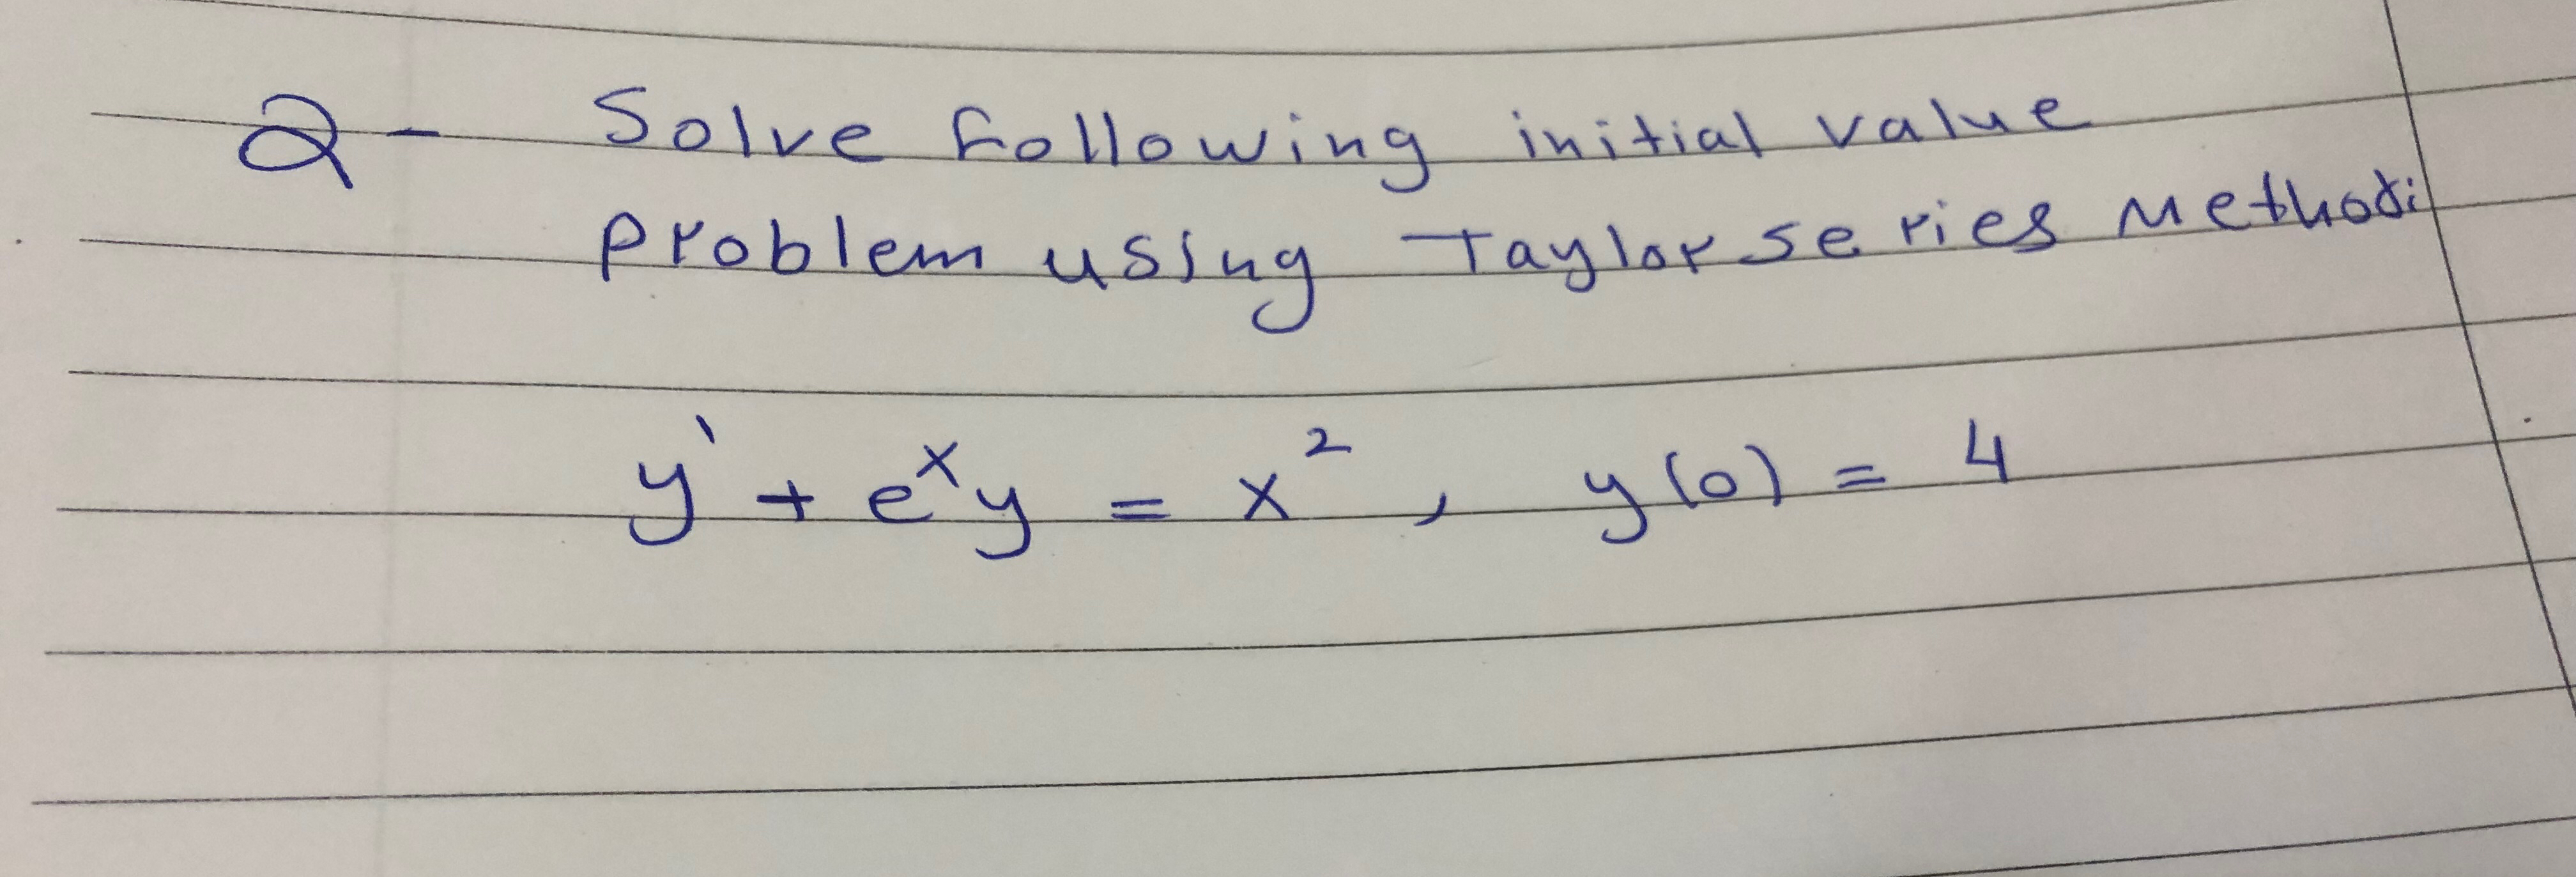 Q- Solve following initial value
problem using Taylor series Method:
y' + e^x y = x^2 , y(0) = 4